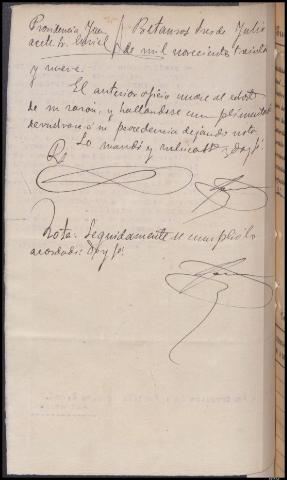 Providencia Juez
acctal. Sr.
Betanzos dos de Julio
de mil novecientos treinta
y nueve.
El anterior oficio unase al
de su razón, y hallandose cumplimentado
devuelvase a su procedencia dejando nota.
Lo mandó y rubrica Sª Sª Doy fé.
Nota: Seguidamente se cumplió lo
acordado: Doy fé.